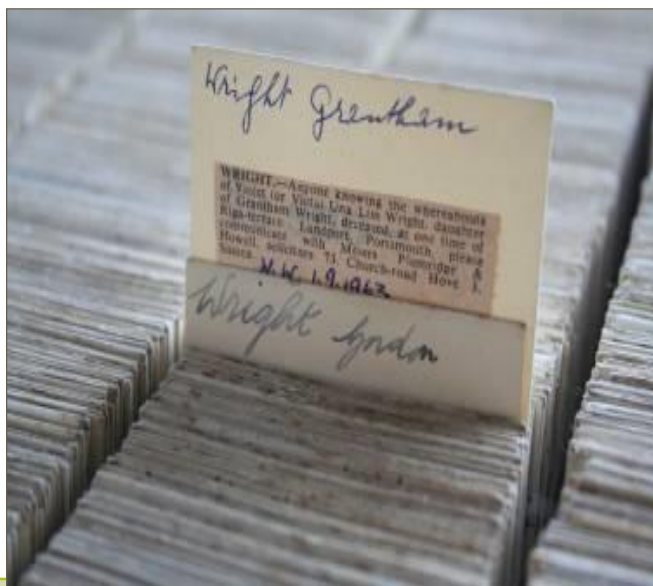 Wright Grantham
WRIGHT.—Anyone knowing the whereabouts
of Violet (or Viola) Lina Lim Wright, daughter
of Grantham Wright, deceased, at one time of
Riga-terrace, Landport, Portsmouth, please
communicate with Messrs &
Howell, solicitors 71 Church-road Hove 3,
Sussex.
N.W. 1.9.1963
Wright Gordon